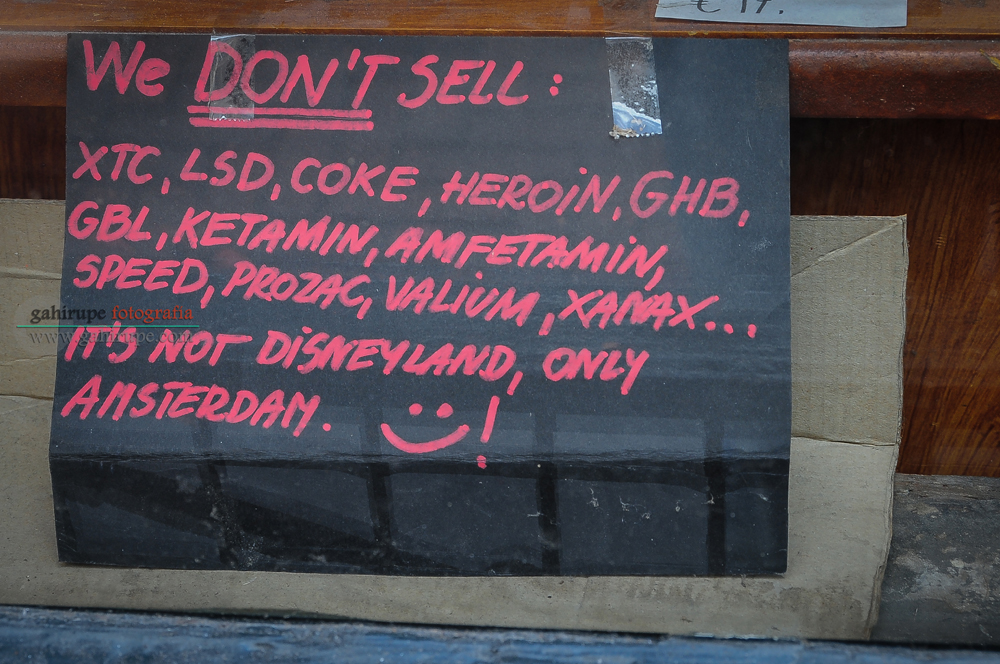 € 17.
We DON'T SELL :
XTC, LSD, COKE, HEROiN, GHB,
GBL, KETAMIN, AMFETAMiN,
SPEED, PROZAC, VALiUM, XANAX...
IT'S NOT DiSNEYLAND, ONLY
AMSTERDAM. !
gahirupe fotografia
www.gahirupe.com